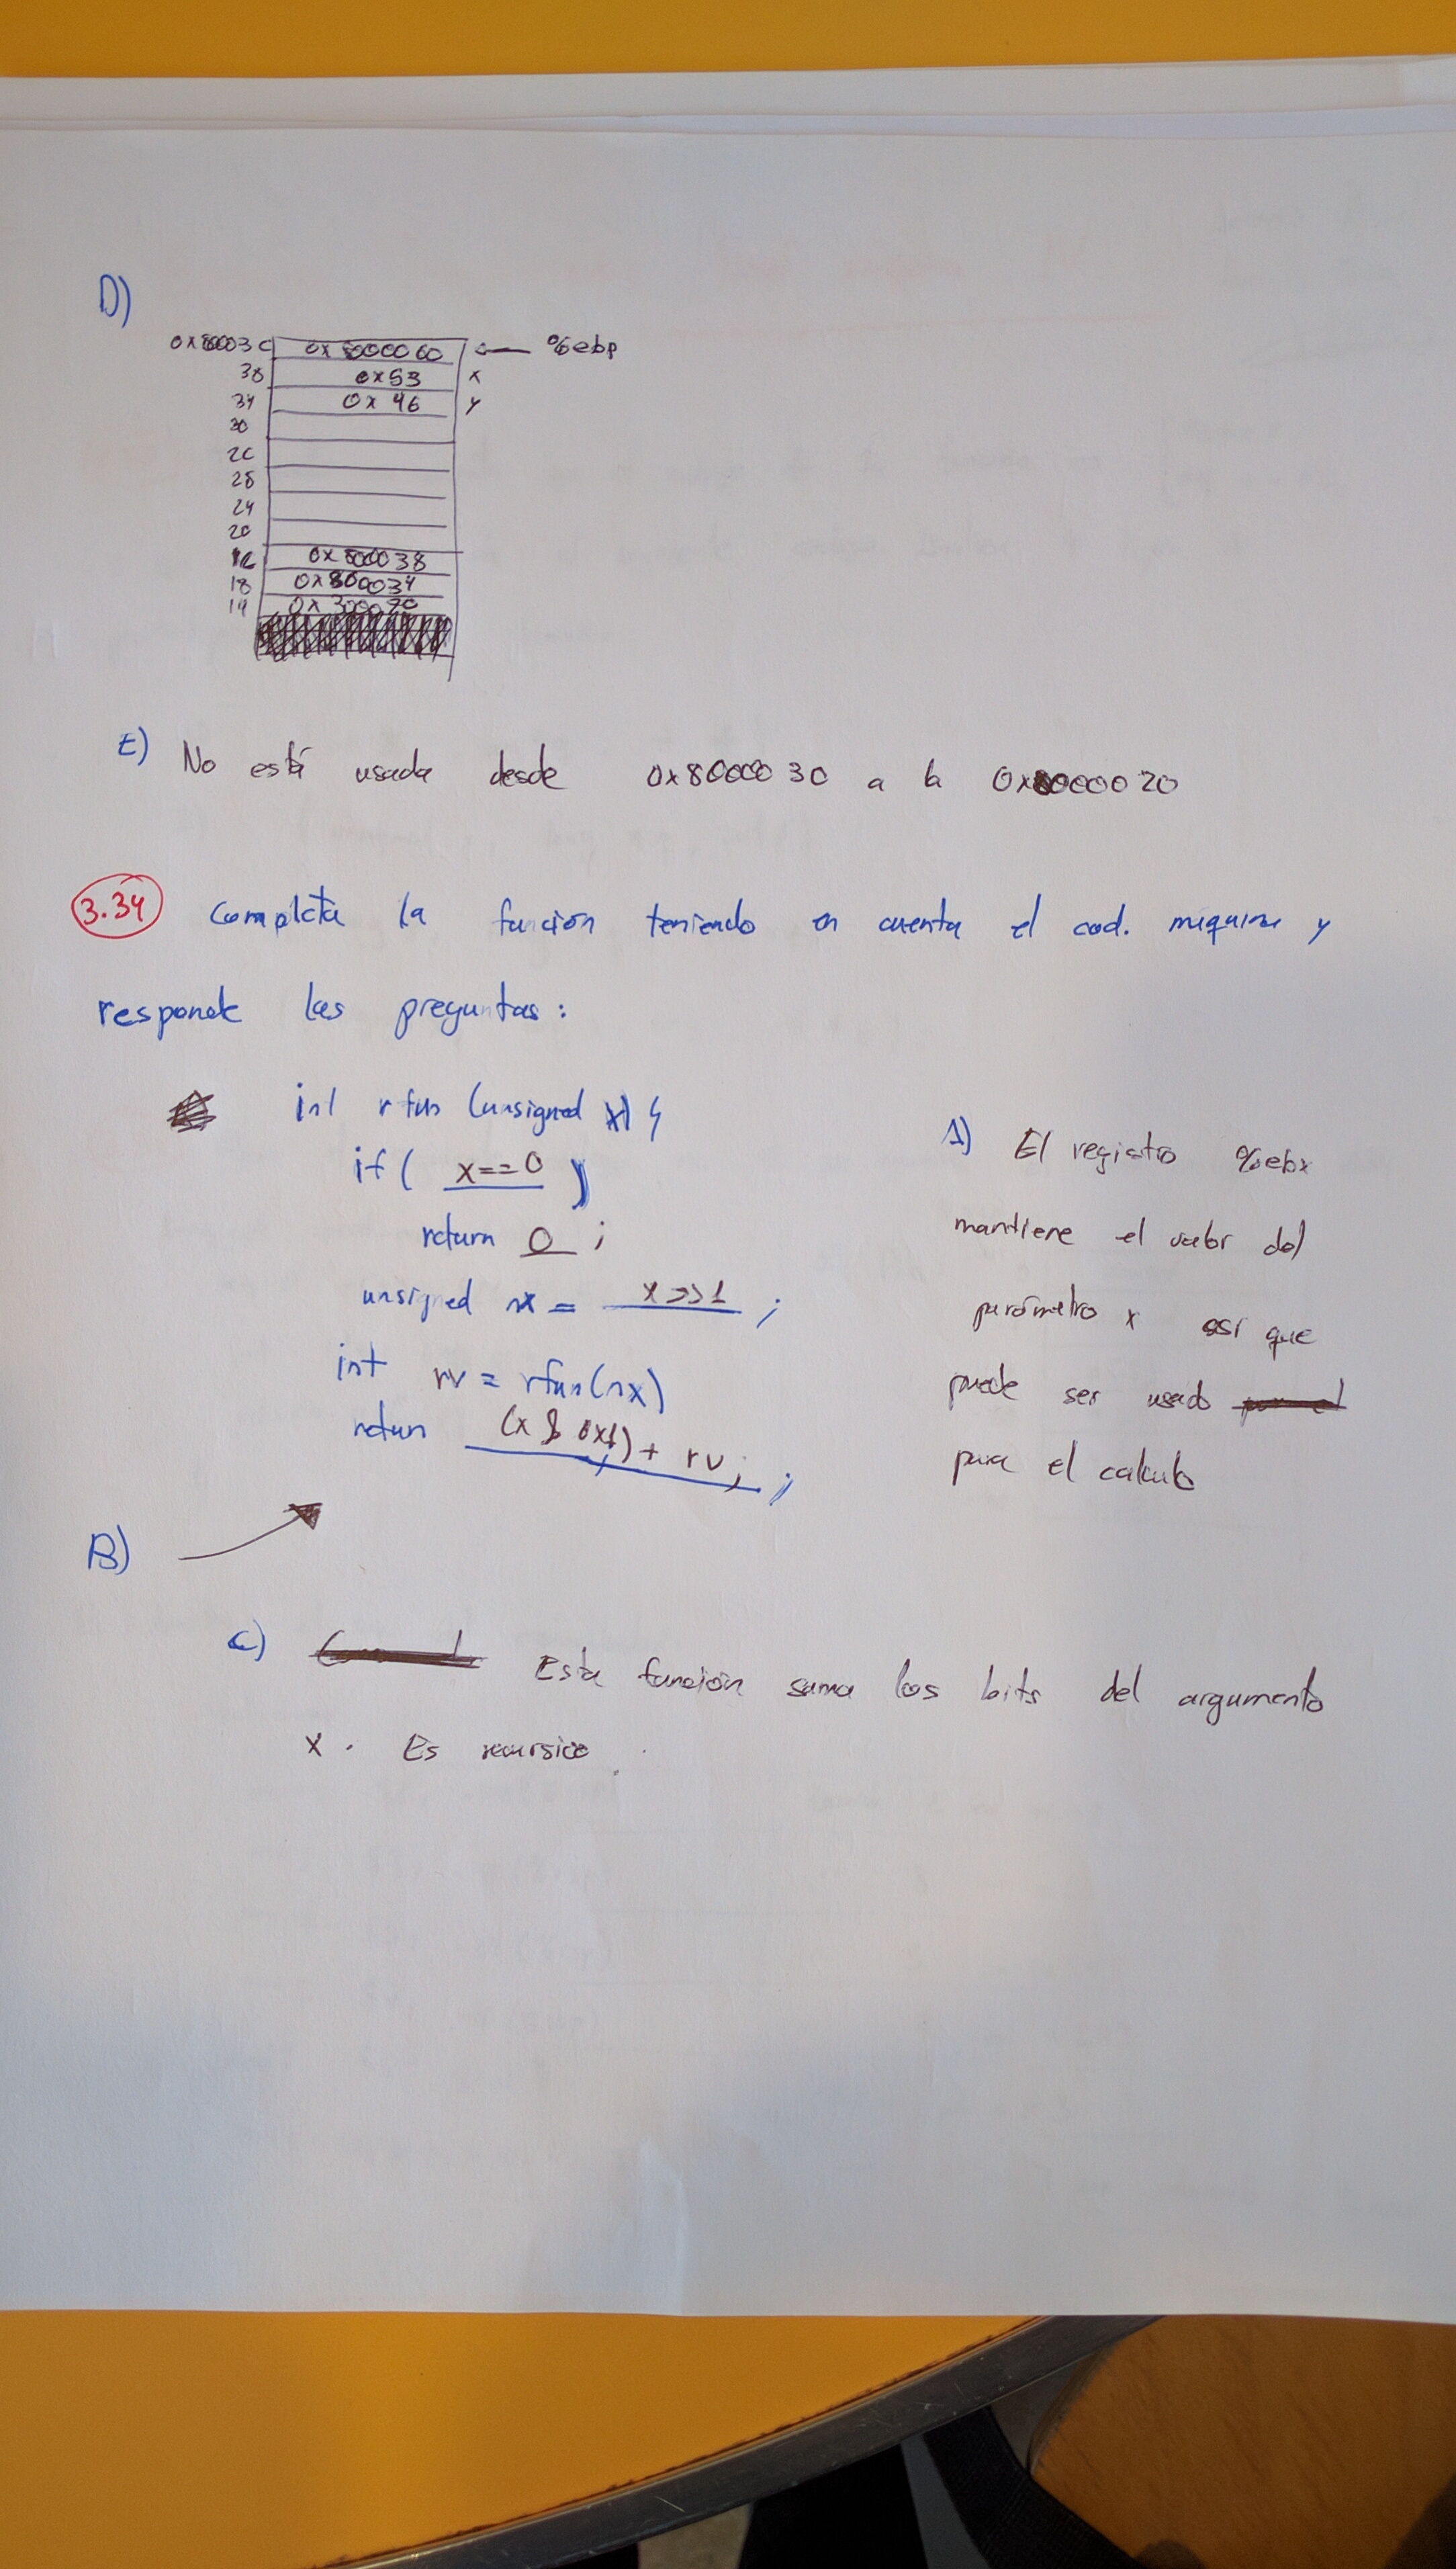 D)
0x80003C 0x800060 ← %ebp
38 0x53 x
34 0x46 y
30
2C
28
24
20
1C 0x800038
18 0x800034
14 0x300070
E) No está usada desde 0x800030 a la 0x800020
3.34 Completa la función teniendo en cuenta el cod. máquina y
responde las preguntas:
int rfun (unsigned x) {
if ( x==0 )
return 0 ;
unsigned nx = x>>1 ;
int rv = rfun(nx)
return (x & 0x1) + rv; ;
A) El registro %ebx
mantiene el valor del
parámetro x así que
puede ser usado
para el calculo
B)
C) Esta función suma los bits del argumento
x. Es recursiva.